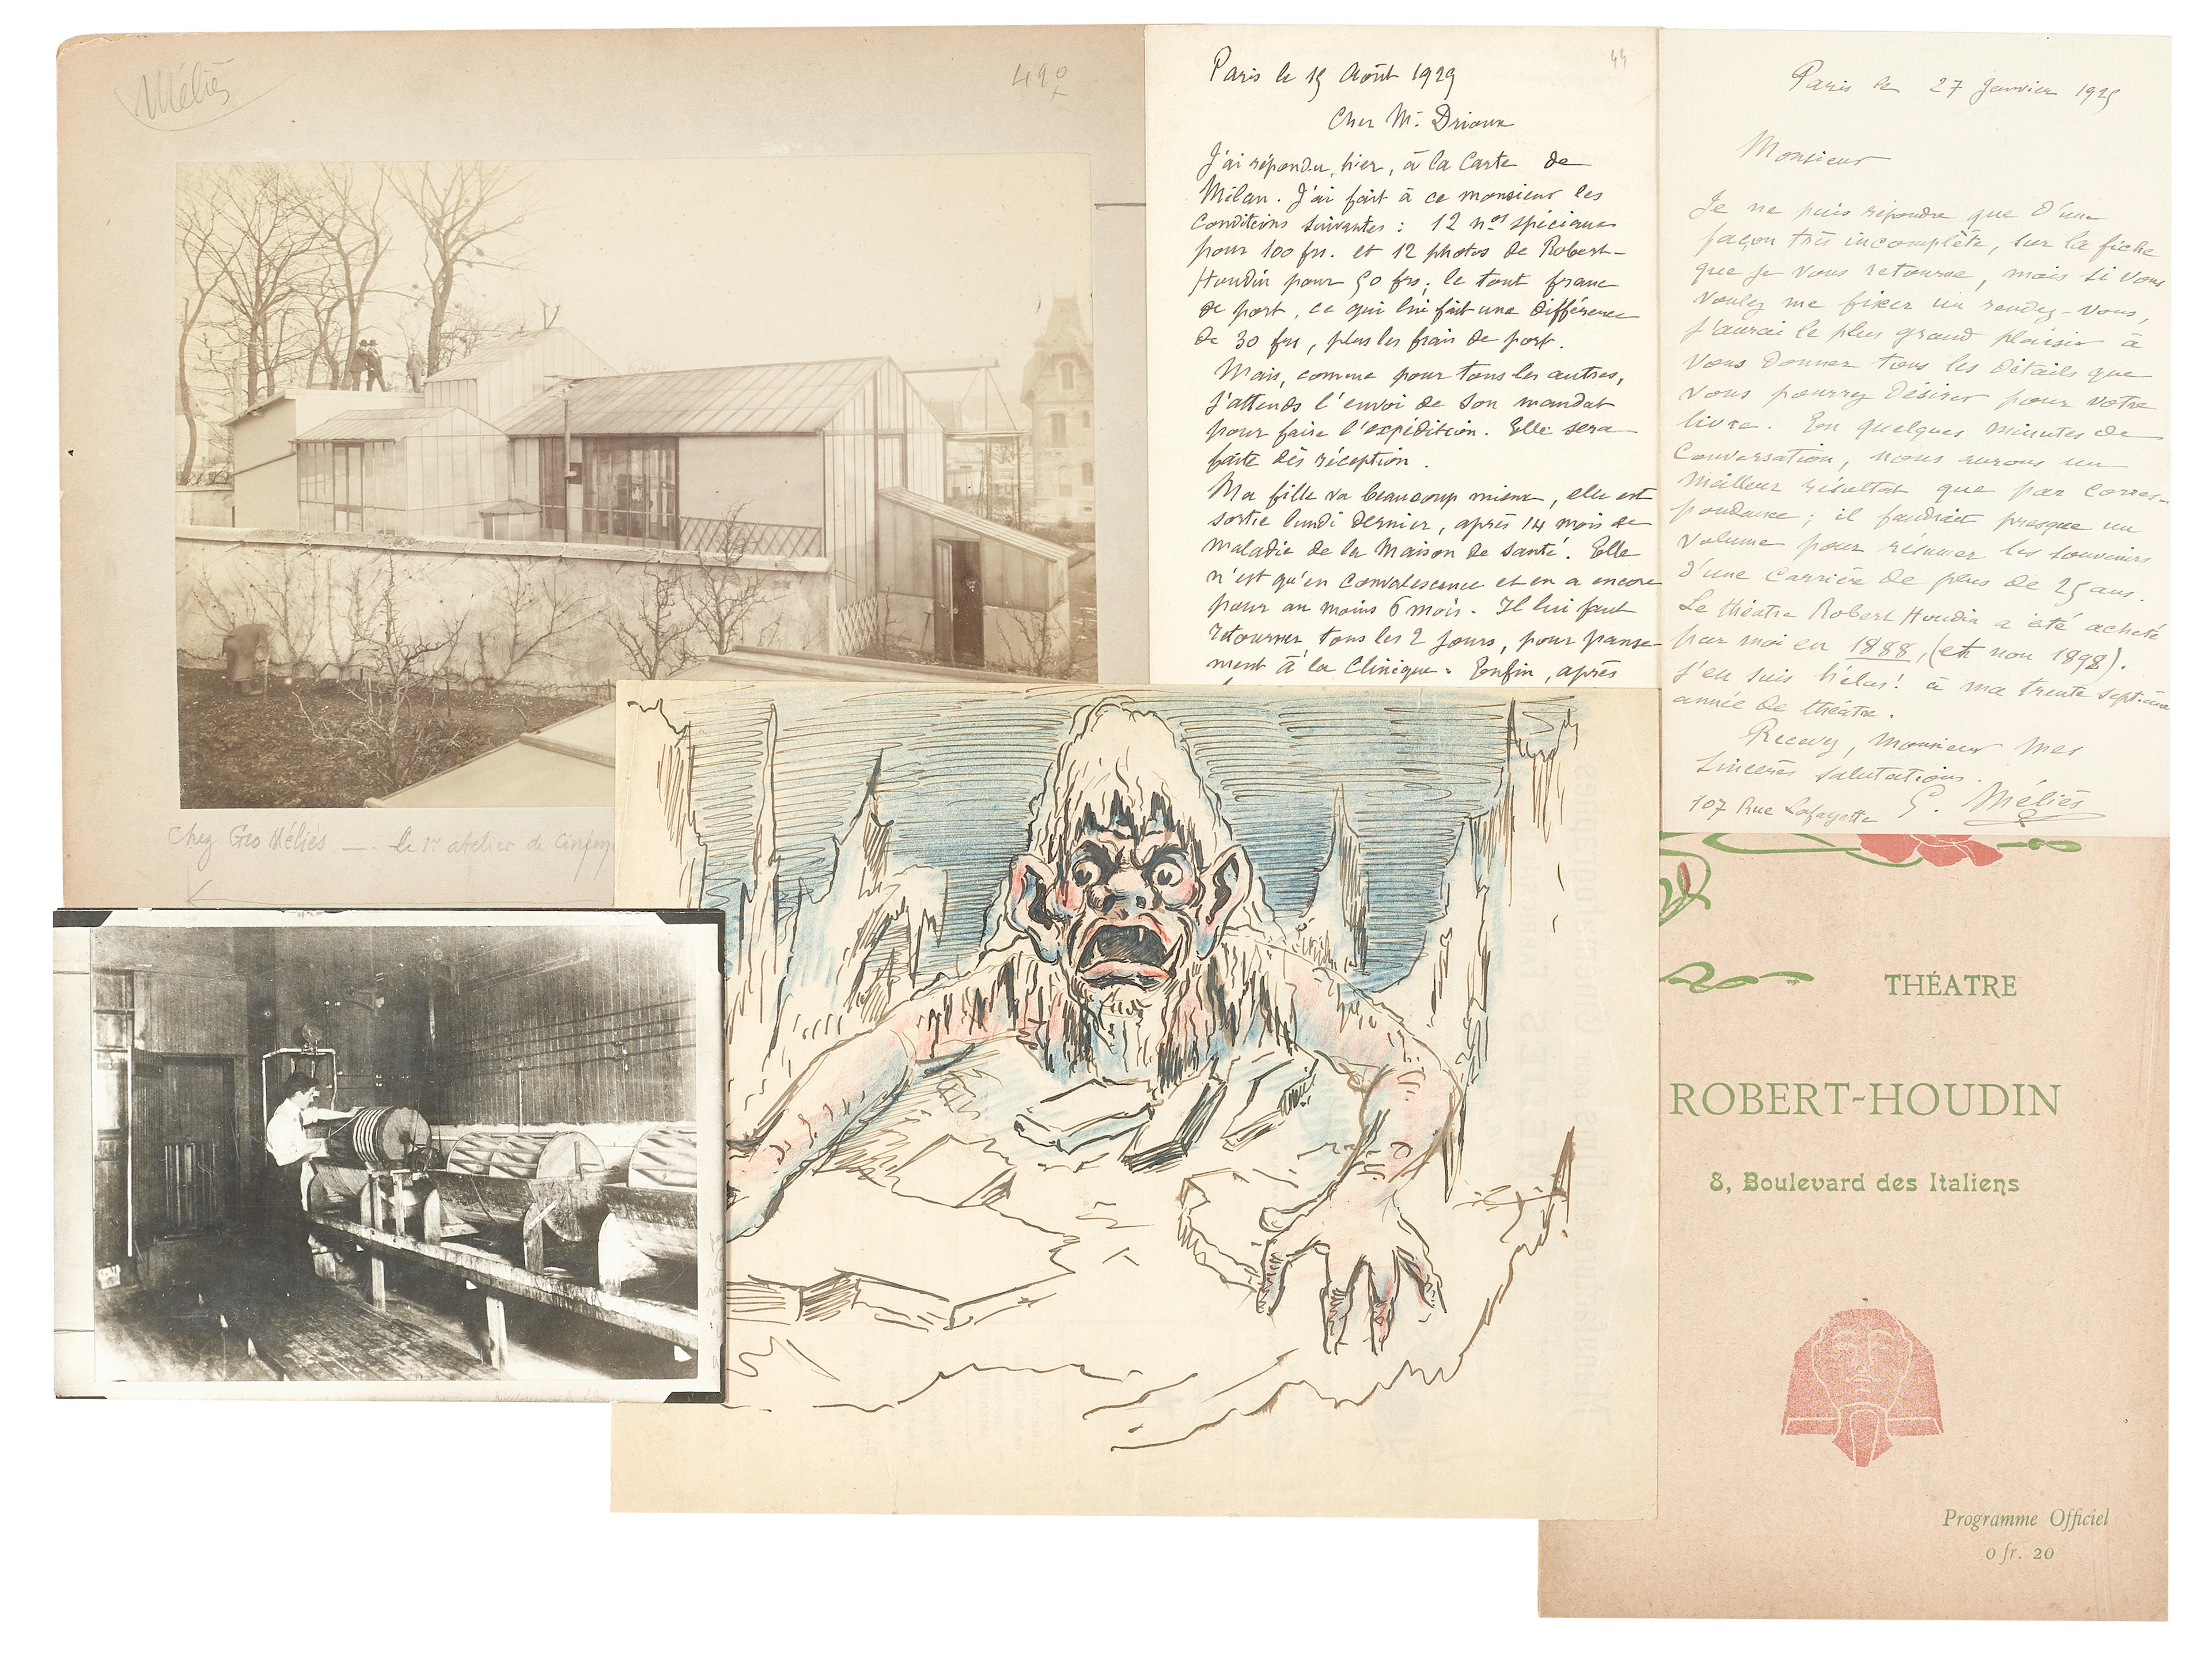 Méliès
Chez Geo Méliès — le 1er atelier de
44
Paris le 15 Août 1929
Cher Mr. Drioux
J'ai répondu, hier, à la carte de
Milan. J'ai fait à ce monsieur les
conditions suivantes : 12 nos spéciaux
pour 100 frs. et 12 photos de Robert-
Houdin pour 50 frs; le tout franc
de port, ce qui lui fait une différence
de 30 frs, plus les frais de port.
Mais, comme pour tous les autres,
j'attends l'envoi de son mandat
pour faire l'expédition. Elle sera
faite dès réception.
Ma fille va beaucoup mieux, elle est
sortie lundi dernier, après 14 mois de
maladie de la Maison de santé. Elle
n'est qu'en convalescence et en a encore
pour au moins 6 mois. Il lui faut
retourner, tous les 2 jours, pour panse-
ment à la Clinique. Enfin, après
Paris le 27 Janvier 1925
Monsieur
Je ne puis répondre que d'une
façon très incomplète, sur la fiche
que je vous retourne, mais si vous
voulez me fixer un rendez-vous,
j'aurai le plus grand plaisir à
vous donner tous les détails que
vous pourrez désirer pour votre
livre. En quelques minutes de
conversation, nous aurons un
meilleur résultat que par corres-
pondance; il faudrait presque un
volume pour résumer les souvenirs
d'une carrière de plus de 25 ans.
Le théâtre Robert Houdin a été acheté
par moi en 1888, (et non 1898).
J'en suis hélas! à ma trente septième
année de théâtre.
Recevez, Monsieur mes
sincères salutations.
G. Méliès
107 Rue Lafayette
THÉATRE
ROBERT-HOUDIN
8, Boulevard des Italiens
Programme Officiel
0 fr. 20